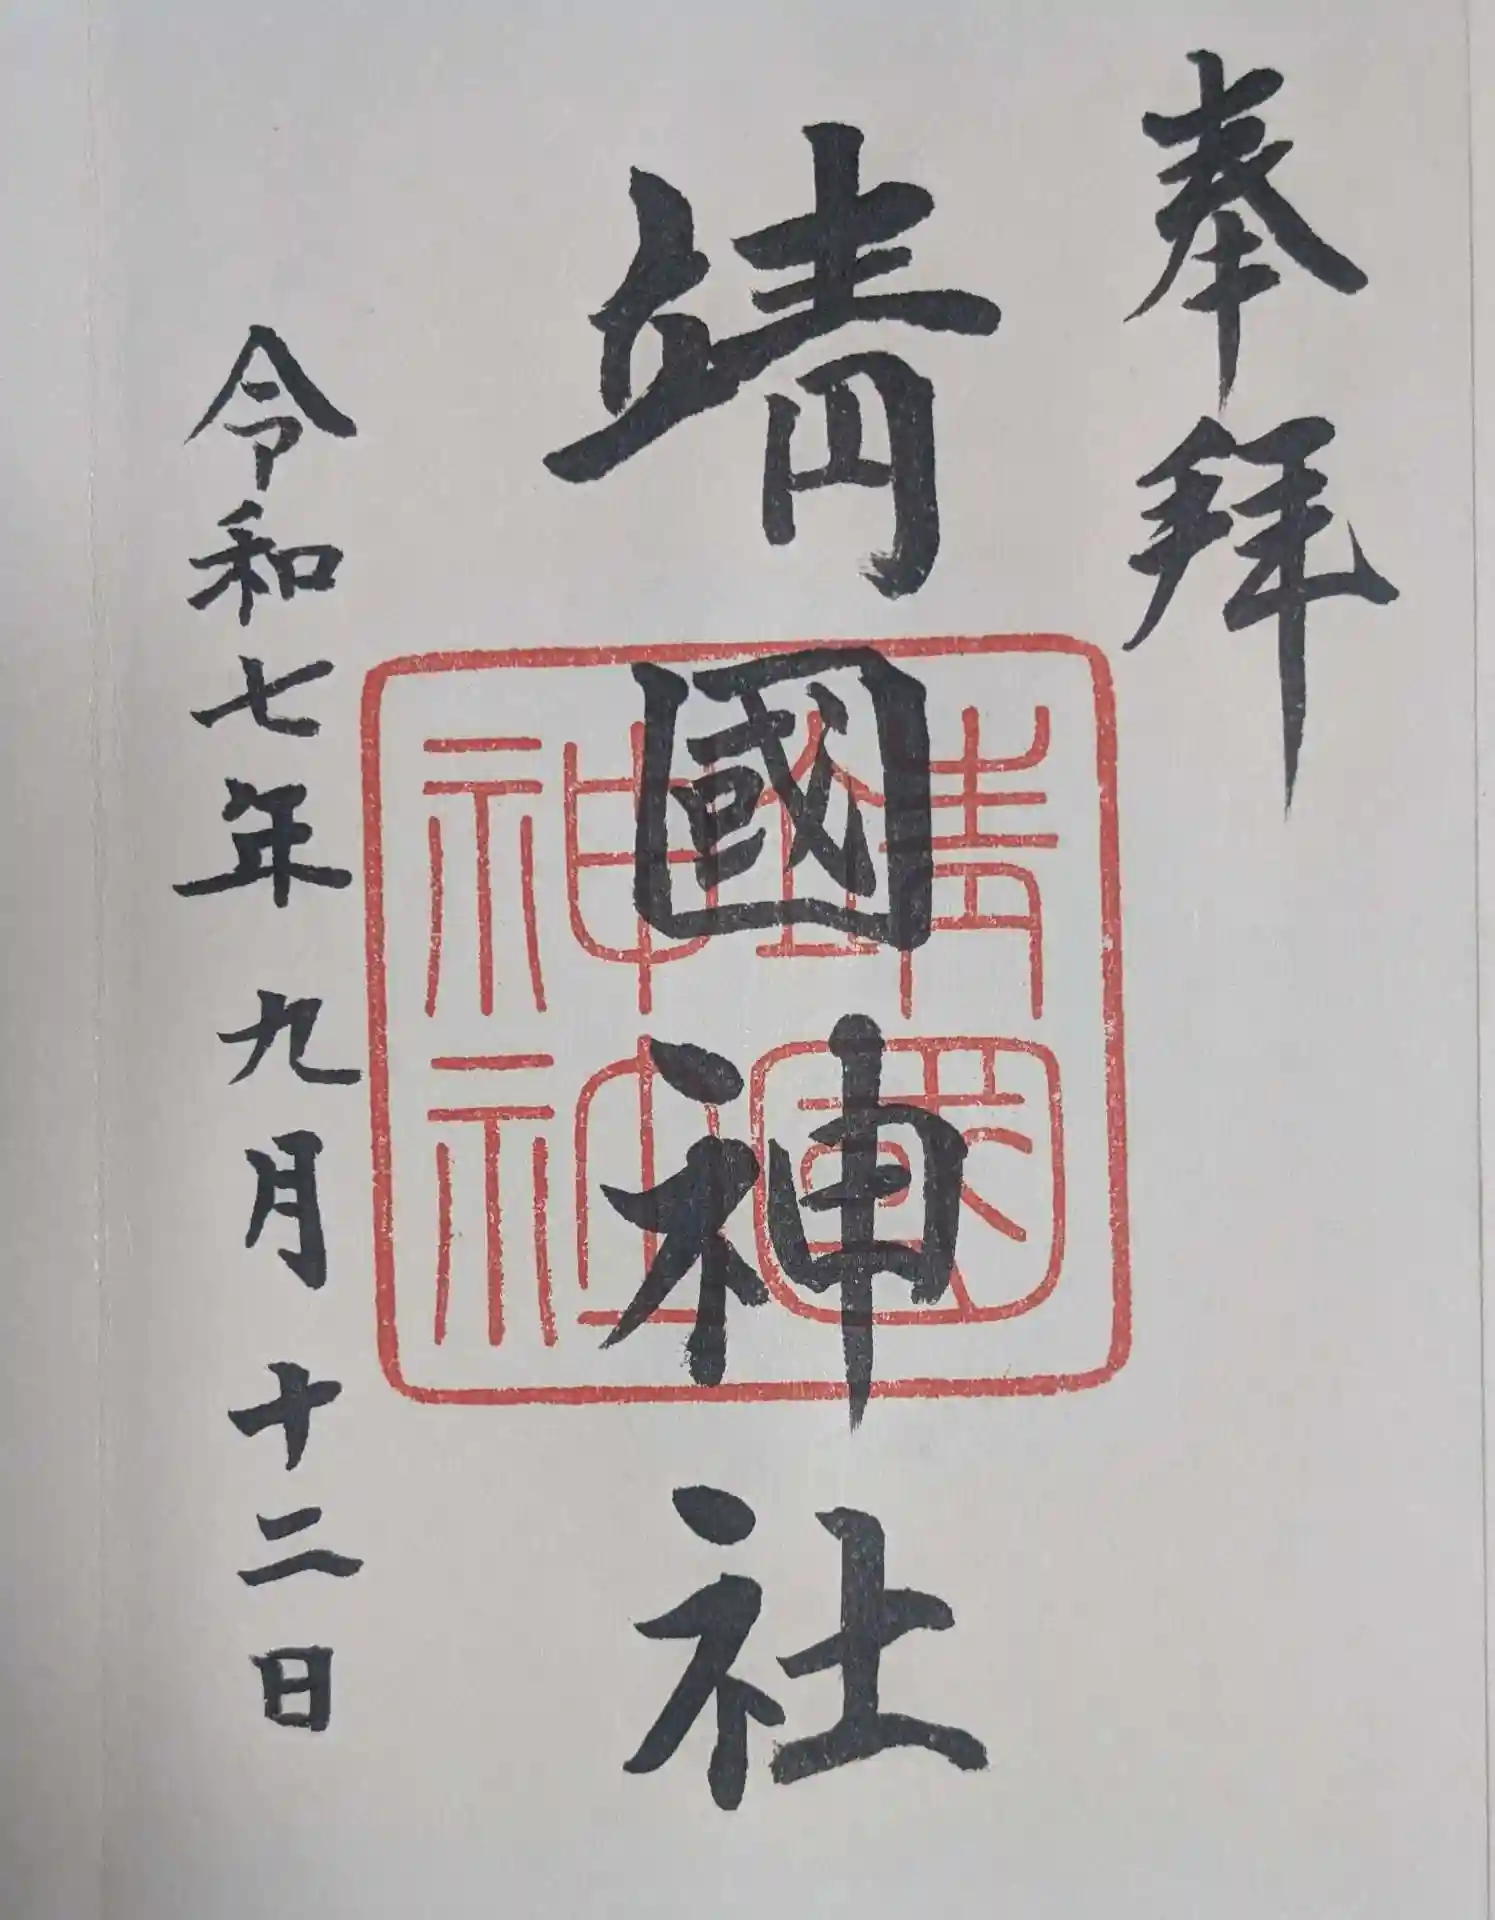 奉拜
靖國神社
靖國
神社
令和七年九月十二日